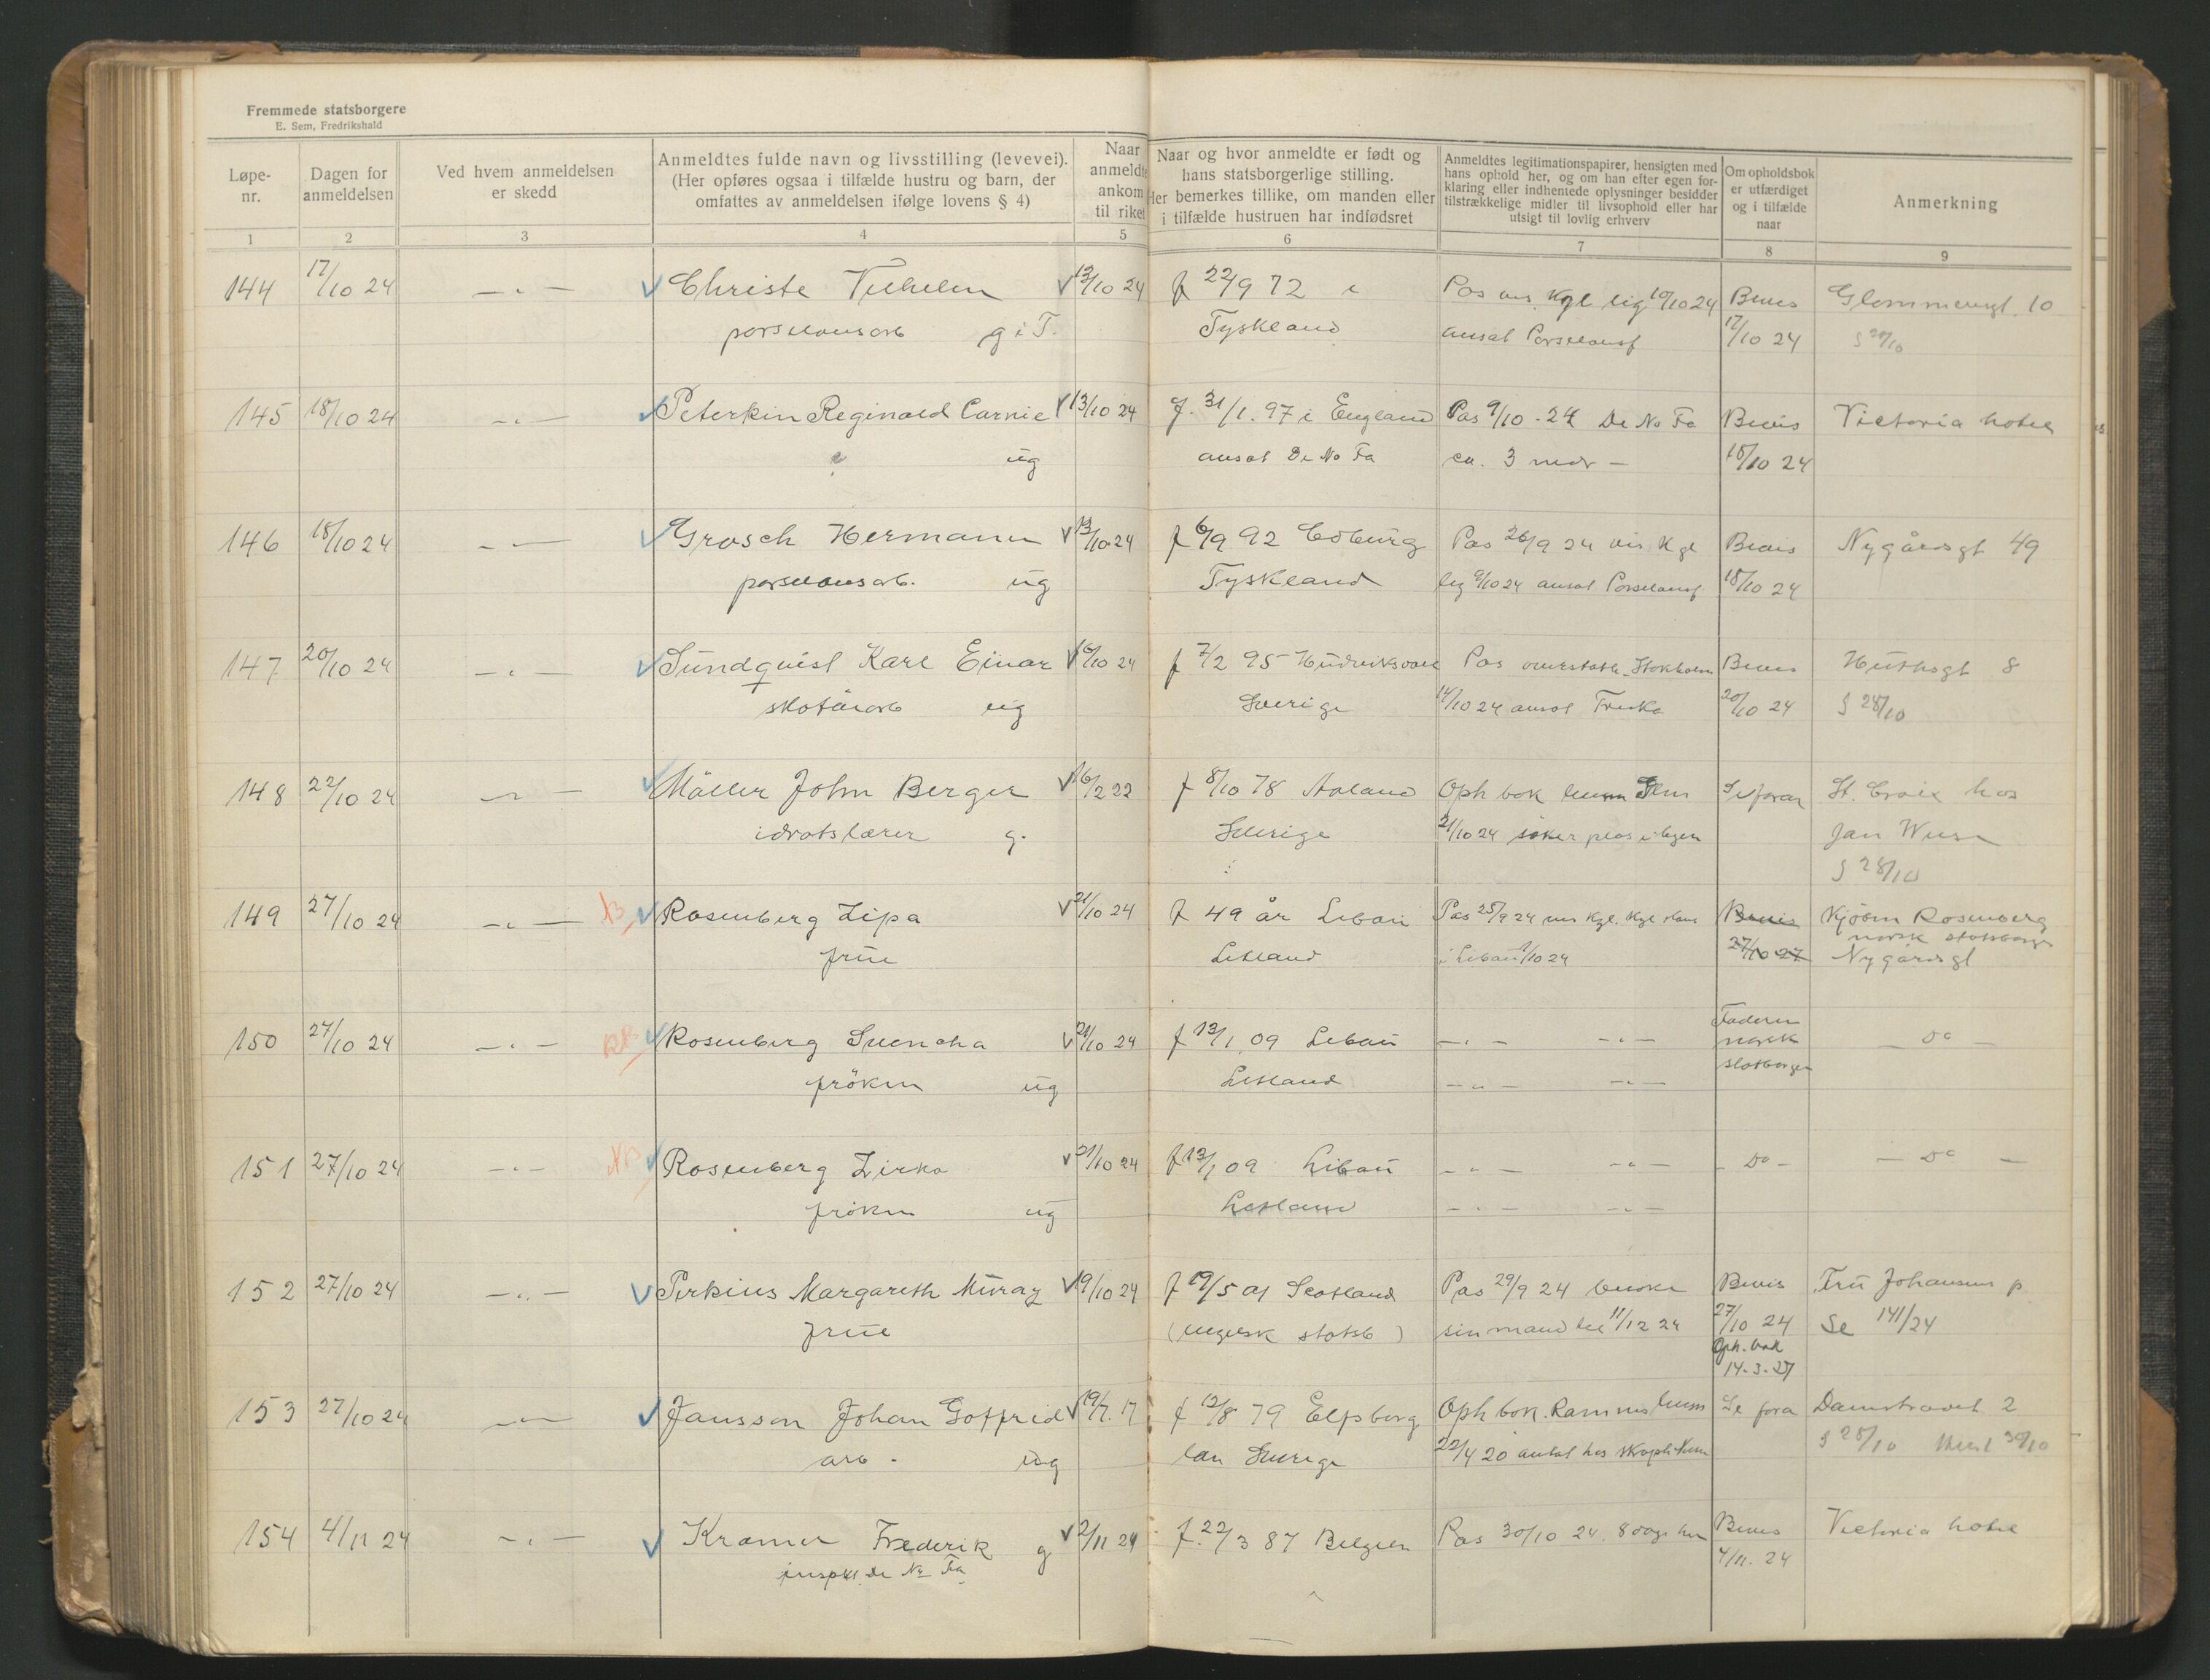 Fremmede statsborgere
E. Sem, Fredrikshald
Løpe-
nr.
Dagen for
anmeldelsen
Ved hvem anmeldelsen
er skedd
Anmeldtes fulde navn og livsstilling (levevei).
(Her opføres ogsaa i tilfælde hustru og barn, der
omfattes av anmeldelsen ifølge lovens § 4)
Naar
anmeldte
ankom
til riket
Naar og hvor anmeldte er født og
hans statsborgerlige stilling.
Her bemerkes tillike, om manden eller
i tilfælde hustruen har indfødsret
Anmeldtes legitimationspapirer, hensigten med
hans ophold her, og om han efter egen for-
klaring eller indhentede oplysninger besidder
tilstrækkelige midler til livsophold eller har
utsigt til lovlig erhverv
Om opholdsbok
er utfærdiget
og i tilfælde
naar
Anmerkning
1 2 3 4 5 6 7 8 9
144 17/10 24 — " — Christe Vilhelm 13/10 24 f 22/9 72 i Pas vis Kgl leg 10/10 24 Bevis Glommengt. 10
porselansarb g i T. Tyskland ansat Porselansf 17/10 24 § 20/10
145 18/10 24 — " — Peterkin Reginald Carnie 13/10 24 f. 31/1. 97 i England Pas 9/10 - 24 De No Fa Bevis Victoria hotel
ug ansat De No Fa ca. 3 mdr — 18/10 24
146 18/10 24 — " — Grosch Hermann 13/10 24 f 6/9 92 Coburg Pas 26/9 24 vis Kgl Bevis Nygårdsgt 49
porselansarb. ug Tyskland leg 9/10 24 ansat Porselansf 18/10 24
147 20/10 24 — " — Sundquist Karl Einar 16/10 24 f 7/2 95 Hudviksvall Pas overstath. Stokholm Bevis Huthsgt 8
skotöiarb ug Sverige 14/10 24 ansat 20/10 24 § 28/10
148 22/10 24 — " — Möller John Berger 16/2 22 f 8/10 78 Aaland Oph bok Se foran St. Croix hos
idrotslærer g. Sverige 21/10 24 söker plas i byen Jan
§ 28/10
149 27/10 24 — " — Rosenberg Zipa 21/10 24 f 49 år Libau Pas 25/9 24 vis Kgl. Bevis Kjöbm Rosenberg
norsk statsborger
frue Letland i Libau 1/10 24 27/10 24 Nygårdsgt
150 27/10 24 — " — Rosenberg Suencha 21/10 24 f 13/1 09 Libau — " — — " — Faderen
norsk
statsborger — Do —
fröken ug Letland — " — — " —
151 27/10 24 — " — Rosenberg Zirka 21/10 24 f 13/1 09 Libau — " — — " — — Do — — Do —
fröken ug Letland — " — — " —
152 27/10 24 — " — Perkins Margareth Muray 19/10 24 f 19/5 01 Scotland Pas 29/9 24 besöke Bevis Fru Johansens p
frue (engelsk statsb) sin mand til 11/12 24 27/10 24 Se 141/24
Oph. bok
14-3-27
153 27/10 24 — " — Jansson Johan Gottfrid 19/7. 17 f 12/8 79 Elfsborg Oph bok. Ramnes Se fora Damstrædet 2
arb - ug län Sverige 22/4 20 antat hos § 28/10 30/10
154 4/11 24 — " — Kramer Frederik g 2/11 24 f. 22/3 87 Belgien Pas 30/10 24. 8 dage her Bevis Victoria hotel
inspkt. De No Fa 4/11. 24